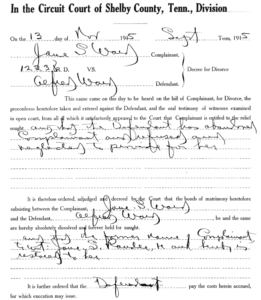 In the Circuit Court of Shelby County, Tenn., Division
On the 13 day of Nov 1915 Sept Term, 1915
Jane S Ware Complainant,
12232 R.D. VS. Decree for Divorce
Alfred Ware Defendant.
This same came on this day to be heard on the bill of Complainant, for Divorce, the
proconfesso heretofore taken and entered against the Defendant, and the oral testimony of witnesses examined
in open court, from all of which it satisfactorily appeared to the Court that Complainant is entitled to the relief
sought, and that the Defendant has abandoned
Complainant and refused and
neglected to provide for her
It is therefore ordered, adjudged and decreed by the Court that the bonds of matrimony heretofore
subsisting between the Complainant, Jane S Ware
and the Defendant, Alfred Ware, be and the same
are hereby absolutely dissolved and forever held for naught.
and that the former name of Complainant
to wit Jane S. and hereby is
restored to her
It is further ordered that the Defendant pay the costs herein accrued,
for which execution may issue.